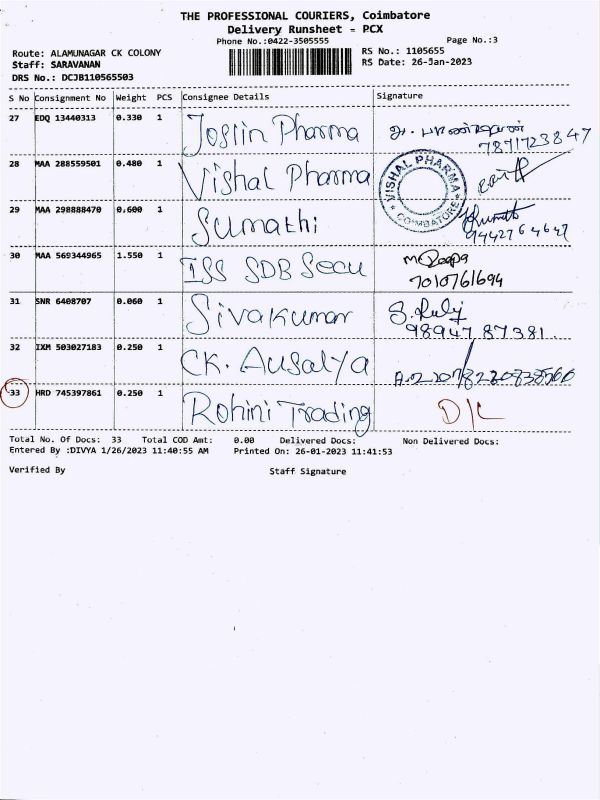 THE PROFESSIONAL COURIERS, Coimbatore
Delivery Runsheet - PCX
Phone No.:0422-3505555
Page No.:3
Route: ALAMUNAGAR CK COLONY
RS No.: 1105655
Staff: SARAVANAN
RS Date: 26-Jan-2023
DRS No.: DCJB110565503
S No Consignment No Weight PCS Consignee Details Signature
27 EDQ 13440313 0.330 1 Jostin Pharma
7871723847
28 MAA 288559501 0.480 1 Vishal Pharma
VISHAL PHARMA
COIMBATORE
29 MAA 298888470 0.600 1 Sumathi
9442764647
30 MAA 569344965 1.550 1 ISS SDB Secu
M Deepa
7010761694
31 SNR 6408707 0.060 1 Sivakumar
98947 87381.
32 IXM 503027183 0.250 1 CK. Ausalya
33 HRD 745397861 0.250 1 Rohini Trading D/L
Total No. Of Docs: 33 Total COD Amt: 0.00 Delivered Docs: Non Delivered Docs:
Entered By :DIVYA 1/26/2023 11:40:55 AM Printed On: 26-01-2023 11:41:53
Verified By Staff Signature